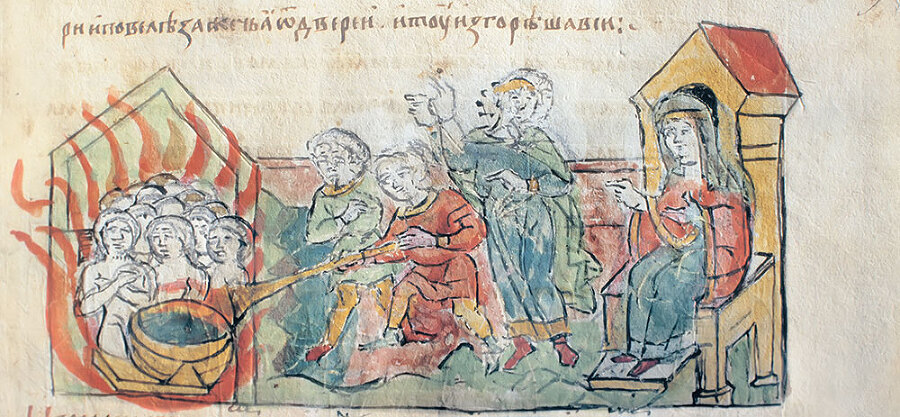 рии иповелѣзажечьꙗ ѿдверии · итоу изгорѣшавси:·